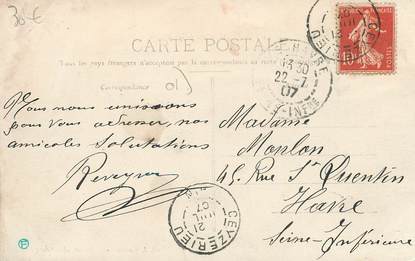 38€
CARTE POSTALE
Tous les pays étrangers n'acceptent pas la correspondance au recto
Correspondance
Nous nous unissons
pour vous adresser, nos
amicales Salutations
Reveyron
Madame
Monlon
45 Rue St Quentin
Havre
Seine-Inférieure
CEYZERIEU
AIN
21
JUIL
07
13 30
22 -7
07
CEYZERIEU
21
POSTES
10